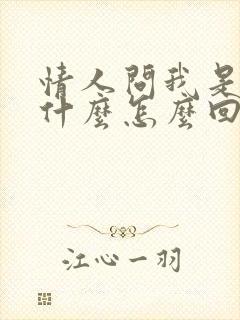 情人問我是
什麼怎麼回
江心一羽